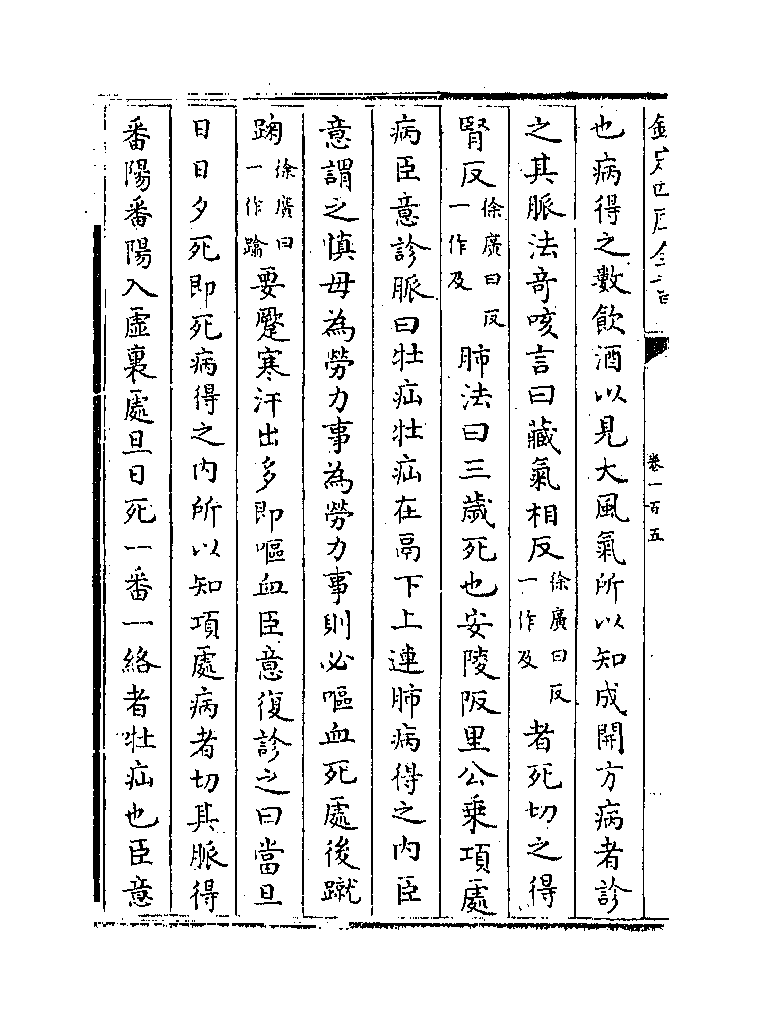 欽定四庫全書
卷一百五
也病得之數飲酒以見大風氣所以知成開方病者診
之其脈法奇咳言曰藏氣相反徐廣曰反一作及者死切之得
腎反徐廣曰反一作及肺法曰三歲死也安陵阪里公乘項處
病臣意診脈曰牡疝牡疝在鬲下上連肺病得之內臣
意謂之慎毋為勞力事為勞力事則必嘔血死處後蹴
踘徐廣曰一作蹹要蹷寒汗出多即嘔血臣意復診之曰當旦
日日夕死即死病得之內所以知項處病者切其脈得
番陽番陽入虛裏處旦日死一番一絡者牡疝也臣意